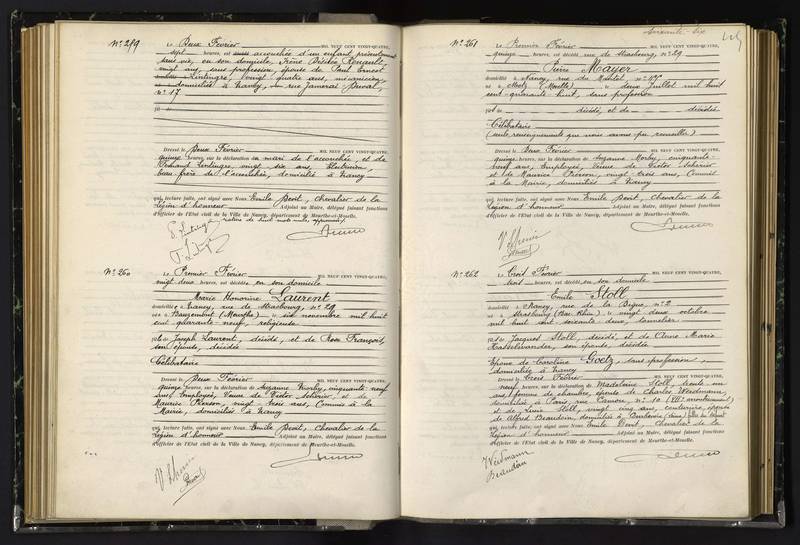 Nº 259
Le Deux Février MIL NEUF CENT VINGT-QUATRE,
sept heures, est accouchée d'un enfant présentement
sans vie, en son domicile, Irène Désirée Renault,
vingt ans, sans profession, épouse de Paul Ernest
vingt quatre ans, mécanicien,
domiciliés à Nancy, rue
nº 17
Dressé le Deux Février MIL NEUF CENT VINGT-QUATRE,
quinze heures, sur la déclaration du mari de l'accouchée, et de
vingt six ans,
beau-frère de l'accouchée, domicilié à Nancy
qui, lecture faite, ont signé avec Nous Emile Devit, chevalier de la
Légion d'honneur Adjoint au Maire, délégué faisant fonctions
d'Officier de l'Etat civil de la Ville de Nancy, département de Meurthe-et-Moselle.
Nº 260
Le Premier Février MIL NEUF CENT VINGT-QUATRE,
vingt deux heures, est décédée en son domicile
Marie Honorine Laurent
domiciliée à Nancy, rue de Strasbourg, nº 29
née à Bauzemont (Meurthe) le six novembre mil huit
cent quarante neuf, religieuse
fille de Joseph Laurent, décédé, et de Rose François,
son épouse, décédée
Célibataire
Dressé le Deux Février MIL NEUF CENT VINGT-QUATRE,
quinze heures, sur la déclaration de Suzanne cinquante neuf
ans, Employée, Veuve de Victor et de
Maurice Pierson, vingt-trois ans, Commis à la
Mairie, domiciliés à Nancy
qui, lecture faite, ont signé avec Nous Emile Devit, chevalier de la
Légion d'honneur Adjoint au Maire, délégué faisant fonctions
d'Officier de l'Etat civil de la Ville de Nancy, département de Meurthe-et-Moselle.
Soixante-six
Nº 261
Le Premier Février MIL NEUF CENT VINGT-QUATRE,
quinze heures, est décédé rue de Strasbourg, nº 29
Pierre Mayer
domicilié à Nancy, rue du
né à Metz (Moselle) le deux Juillet mil huit
cent quarante huit, sans profession
fils de décédé, et de décédée
Célibataire
(seuls renseignements que nous avons pu recueillir)
Dressé le Deux Février MIL NEUF CENT VINGT-QUATRE,
quinze heures, sur la déclaration de Suzanne cinquante-
neuf ans, Employée, Veuve de Victor
et de Maurice Pierson, vingt-trois ans, Commis
à la Mairie, domiciliés à Nancy
qui, lecture faite, ont signé avec Nous Emile Devit, chevalier de la
Légion d'honneur Adjoint au Maire, délégué faisant fonctions
d'Officier de l'Etat civil de la Ville de Nancy, département de Meurthe-et-Moselle.
Nº 262
Le Trois Février MIL NEUF CENT VINGT-QUATRE,
trois heures, est décédé en son domicile
Emile Stoll
domicilié à Nancy, rue de la Digue, nº 2
né à Strasbourg (Bas-Rhin) le vingt deux octobre
mil huit cent soixante deux, tonnelier
fils de Jacques Stoll, décédé, et de Anne Marie
Hasselwander, son épouse, décédée
Epoux de Caroline Goetz, sans profession,
domiciliée à Nancy
Dressé le Trois Février MIL NEUF CENT VINGT-QUATRE,
neuf heures, sur la déclaration de Madeleine Stoll, trente un
ans, femme de chambre, épouse de Charles Weidmann,
domiciliée à Paris, rue
et de Stoll, vingt cinq ans, couturière, épouse
de Alfred Beaudoin, domiciliée à
qui, lecture faite, ont signé avec Nous Emile Devit, Chevalier de la
Légion d'honneur Adjoint au Maire, délégué faisant fonctions
d'Officier de l'Etat civil de la Ville de Nancy, département de Meurthe-et-Moselle.
Weidmann
Beaudoin